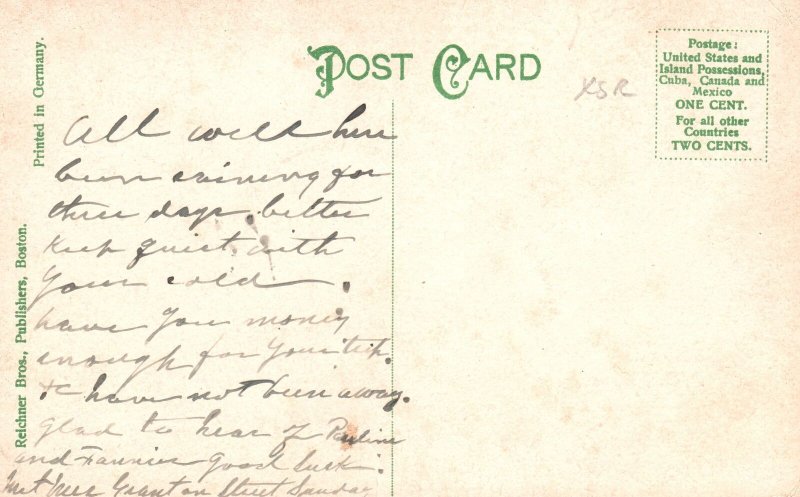 POST CARD
Postage:
United States and
Island Possessions,
Cuba, Canada and
Mexico
ONE CENT.
For all other
Countries
TWO CENTS.
XSR
Printed in Germany.
Reichner Bros., Publishers, Boston.
All well here
been raining for
three days. better
keep quiet with
your cold.
have you money
enough for your trip.
have not been away.
glad to hear of Pauline
and Fannies good luck.
met Grant on Street Sunday